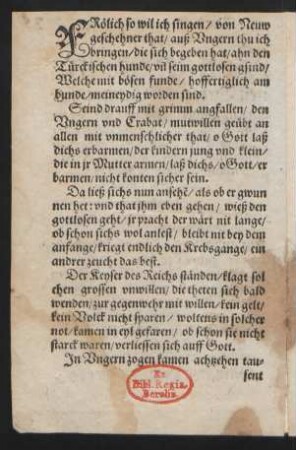 FRölich so wil ich singen / von Neuw
geschehner that / auß Vngern thu ich
bringen / die sich begeben hat / ahn den
Türckischen hunde / vil seim gottlosen gsind /
Welche mit bösen funde / hoffertiglich am
hunde / meineydig worden sind.
Seind drauff mit grimm angfallen / den
Vngern vnd Crabat / mutwillen geübt an
allen mit vnmenschlicher that / o Gott laß
dichs erbarmen / der kindern jung vnd klein /
die in jr Mutter armen / laß dichs / o Gott / er
barmen / nicht konten sicher sein.
Da ließ sichs nun ansehẽ / als ob er gwun
nen het : vnd that jhm eben gehen / wieß den
gottlosen geht / jr pracht der wärt nit lange /
ob schon sichs wol anlest / bleibt nit bey dem
anfange / kriegt endlich den Krebsgange / ein
andrer zeucht das best.
Der Keyser des Reichs ständen / klagt sol
chen grossen vnwillen / die theten sich bald
wenden / zur gegenwehr mit willen / kein gelt /
kein Volck nicht sparen / woltens in solcher
not / kamen in eyl gefaren / ob schon sie nicht
starck waren / verliessen sich auff Gott.
In Vngern zogen kamen achtzehen tau-
sent
Ex
Bibl. Regia
Berolin.